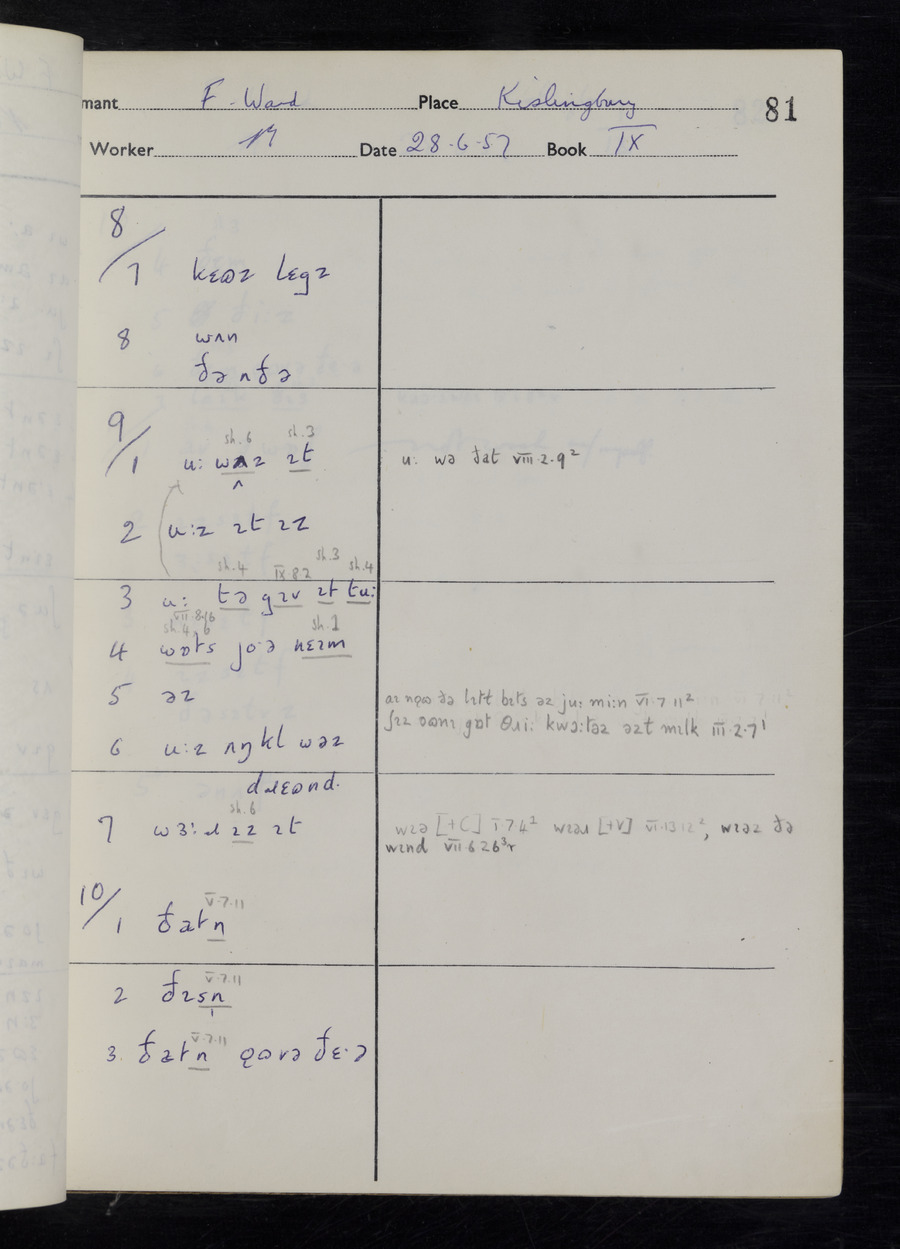 mant F. Ward Place Kislingbury 81
Worker Date 28·6·57 Book IX
8/7 kɛɷz lɛgz
8 wʌn
ðə ʌðə
9/1 u: wʌz ɪt
sh.6 sh.3
u: wə ðat VIII·2·9²
2 u:z ɪt ɪz
sh.4 IX 8 2 sh.3 sh.4
3 u: tə gɪv ɪt tu:
VII·8·16
sh.4, 6 sh.1
4 wɒts jɔ·ə nɛɪm
5 əz
aɪ noɷ ðə lɪtl bɪts əz ju: mi:n VI 7 11²
ʃɪz oɷnɪ gɒt θɹi: kwɔ:təz əzt mɪlk III·2·7¹
6 u:z ʌŋkl wəz
dɹɛɷnd.
sh.6
7 wɜ:ɹ ɪz ɪt
wɪə [+C] I 7 4¹ wɪəɹ [+V] VI·13 12², wɪəz ðə
wɪnd VII·6 26³r
10/1 ðatn
V·7·11
2 ðɪsn
V·7·11
3. ðatn oɷvə ðɛ·ə
V·7·11